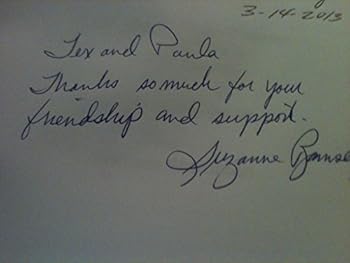 3-14-2013
Tex and Paula
Thanks so much for your
friendship and support.
Suzanne